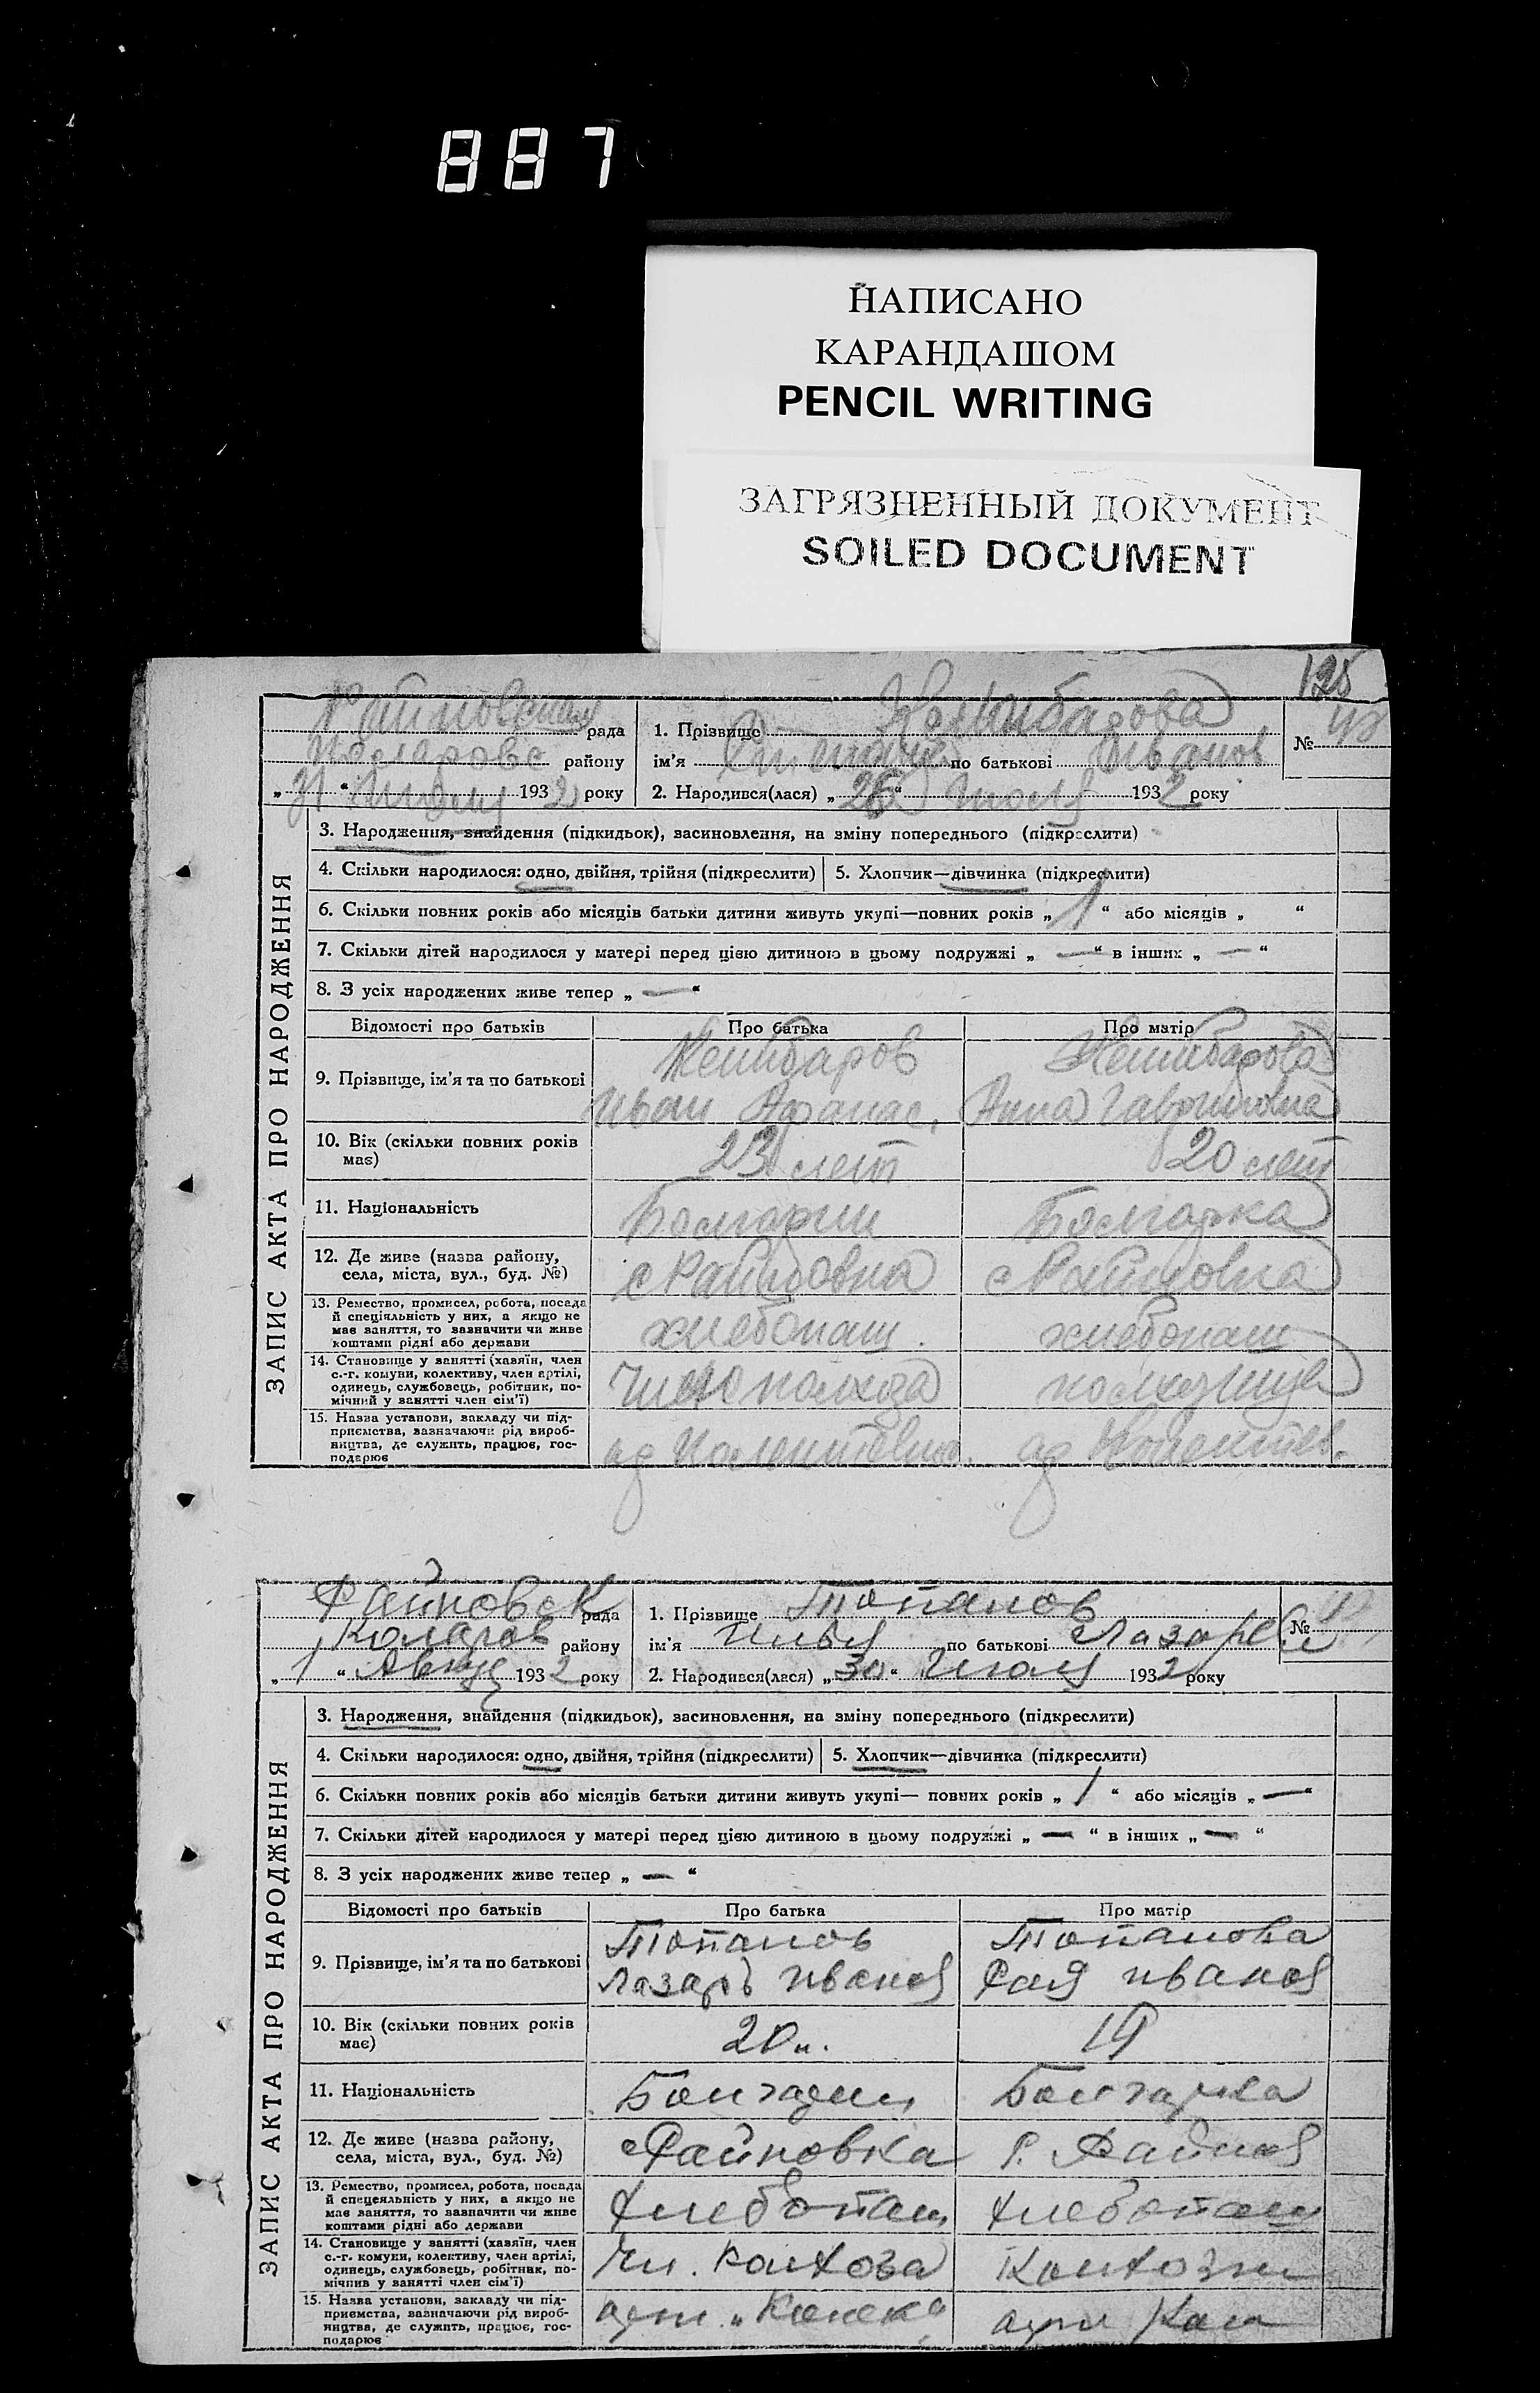 887
НАПИСАНО
КАРАНДАШОМ
PENCIL WRITING
ЗАГРЯЗНЕННЫЙ ДОКУМЕНТ
SOILED DOCUMENT
125
рада
району
193 2 року
1. Прізвище
ім'я по батькові Иванов
2. Народився(лася) „ “ Июля 1932 року
№
ЗАПИС АКТА ПРО НАРОДЖЕННЯ
3. Народження, знайдення (підкидьок), засиновлення, на зміну попереднього (підкреслити)
4. Скільки народилося: одно, двійня, трійня (підкреслити) 5. Хлопчик—дівчинка (підкреслити)
6. Скільки повних років або місяців батьки дитини живуть укупі—повних років „ 1 “ або місяців „ “
7. Скільки дітей народилося у матері перед цією дитиною в цьому подружжі „ — “ в інших „ — “
8. З усіх народжених живе тепер „ — “
Відомості про батьків Про батька Про матір
9. Прізвище, ім'я та по батькові
Иван Афанас. Анна Гавриловна
10. Вік (скільки повних років
має) 23 лет 20 лет
11. Національність Болгарин Болгарка
12. Де живе (назва району,
села, міста, вул., буд. №) с Райновка с Райновка
13. Ремество, промисел, робота, посада
й спеціяльність у них, а якщо не
має заняття, то зазначити чи живе
коштами рідні або держави хлебопаш. хлебопаш
14. Становище у занятті (хазяїн, член
с.-г. комуни, колективу, член артілі,
одинець, службовець, робітник, по-
мічний у занятті член сім'ї) Член колхоза колхозница
15. Назва установи, закладу чи під-
приємства, зазначаючи рід вироб-
ництва, де служить, працює, гос-
подарює
Райновск рада
Коларов району
„ 1 “ Август 193 2 року
1. Прізвище Топалов
ім'я Илья по батькові Лазарев
2. Народився(лася) „ 30 “ Июля 1932 року
№
ЗАПИС АКТА ПРО НАРОДЖЕННЯ
3. Народження, знайдення (підкидьок), засиновлення, на зміну попереднього (підкреслити)
4. Скільки народилося: одно, двійня, трійня (підкреслити) 5. Хлопчик—дівчинка (підкреслити)
6. Скільки повних років або місяців батьки дитини живуть укупі— повних років „ 1 “ або місяців „ — “
7. Скільки дітей народилося у матері перед цією дитиною в цьому подружжі „ — “ в інших „ — “
8. З усіх народжених живе тепер „ — “
Відомості про батьків Про батька Про матір
Топалов Топалова
9. Прізвище, ім'я та по батькові Лазарь Иванов Иванов
10. Вік (скільки повних років
має) 20 л. 19
11. Національність Болгарин Болгарка
12. Де живе (назва району,
села, міста, вул., буд. №) с Райновка
13. Ремество, промисел, робота, посада
й спецеяльність у них, а якщо не
має заняття, то зазначити чи живе
коштами рідні або держави Хлебопаш Хлебопаш
14. Становище у занятті (хазяїн, член
с.-г. комуни, колективу, член артілі,
одинець, службовець, робітник, по-
мічнив у занятті член сім'ї) Чл. колхоза Колхозн
15. Назва установи, закладу чи під-
приємства, зазначаючи рід вироб-
ництва, де служить, працює, гос-
подарює